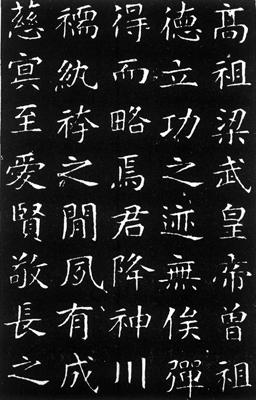 高祖梁武皇帝曾祖
德立功之迹無俟彈
得而略焉君降神川
襦紈袴之閒夙有成
慈冥至愛賢敬長之